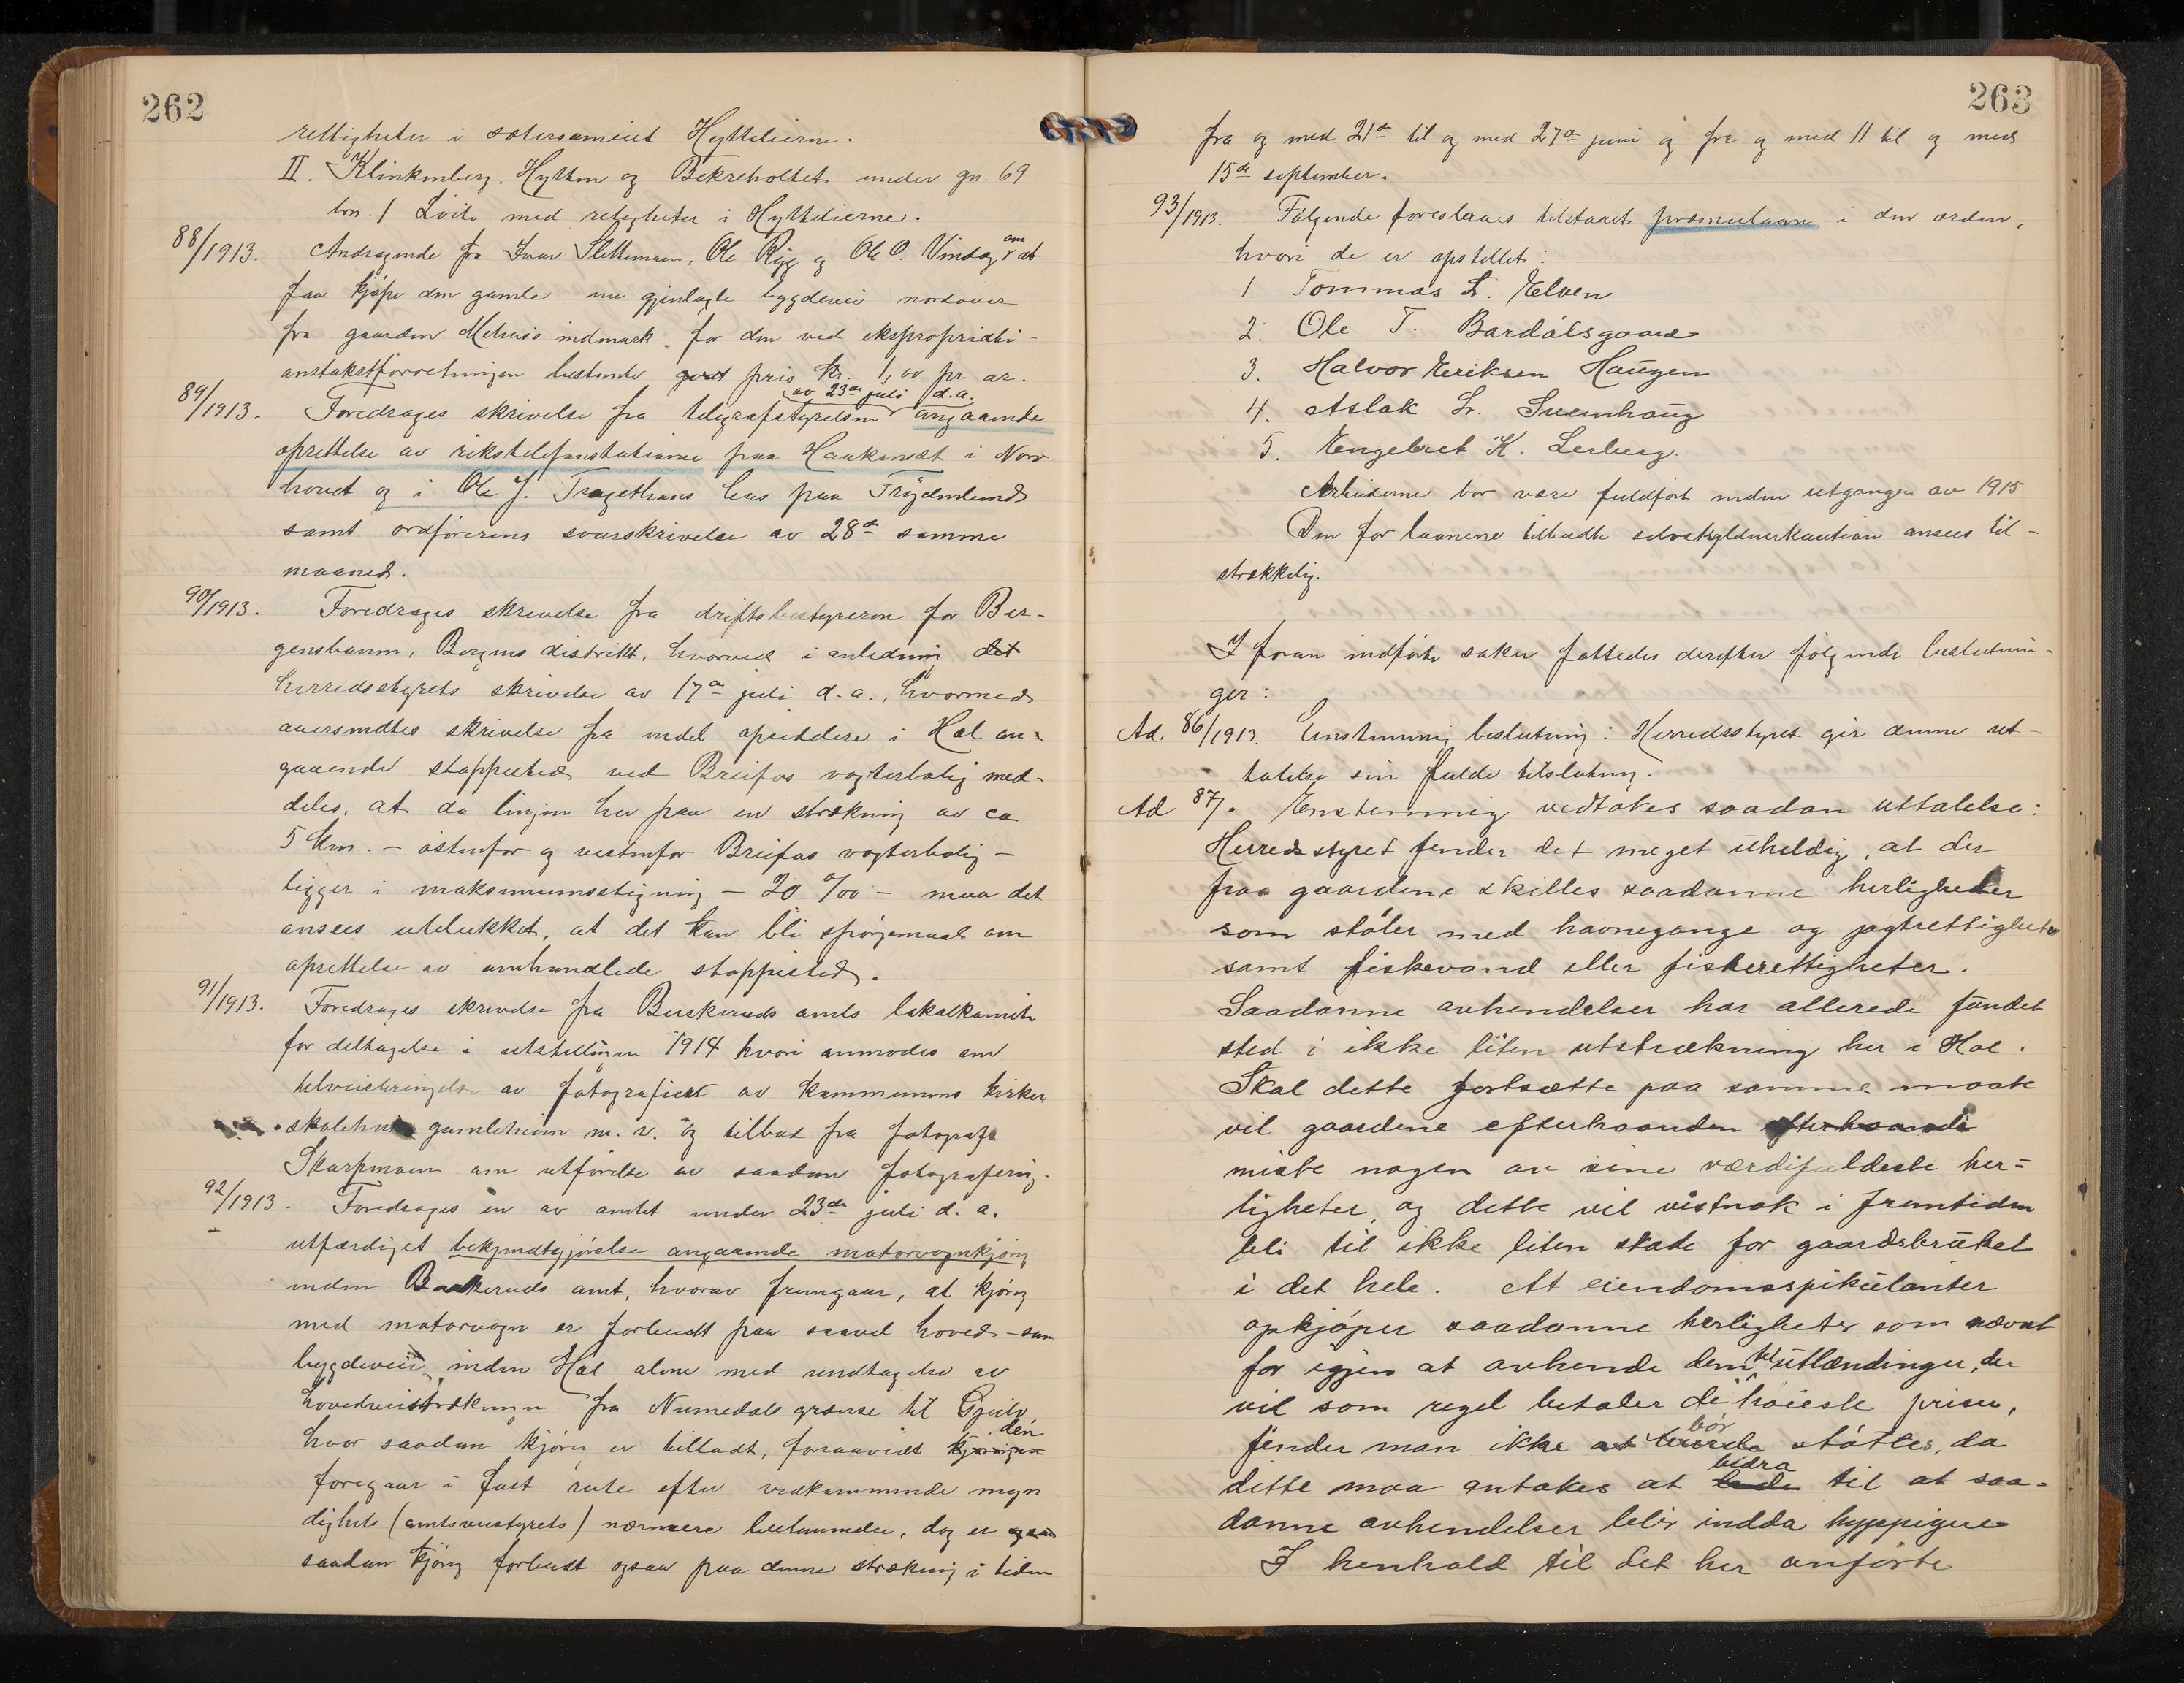 262
rettigheter i sætersameiet Hyttelierne.
II. Klinkenberg, Hytten og Bekkeholtet under gn. 69
brn. 1 Lœite med retigheter i Hyttelierne.
88/1913. Andragende fra Ivar Slettemoen, Ole Rygg og Ole O. Vindegg om at
faa kjøpe den gamle nu gjenlagte bygdevei nordover
fra gaarden Mehuss indmark, for den ved ekspropriati-
onstakstforretningen bestemte pris kr. 1,00 pr. ar.
89/1913. Foredrages skrivelse fra telegrafstyrelsen av 23de juli d.a. angaaende
oprettelse av rikstelefonstationer paa Haakonsæt i Nord
hovet og i Ole J. Tragethons hus paa Frøydenlund
samt ordførerens svarskrivelse av 28de samme
maaned.
90/1913. Foredrages skrivelse fra driftsbestyreren for Ber-
gensbanen, Bergens distrikt, hvorved i anledning det
herredsstyrets skrivelse av 17de juli d.a., hvormed
oversendtes skrivelse fra endel opsiddere i Hol an-
gaaende stoppested ved Breifos vogterbolig med-
deles, at da linjen her paa en strækning av ca
5 km. – østenfor og vestenfor Breifos vogterbolig –
ligger i maksimumsstigning – 20 ‰ – maa det
ansees utelukket, at det kan bli spørgsmaal om
oprettelse av omhandlede stoppested.
91/1913. Foredrages skrivelse fra Buskeruds amts lokalkomite
for deltagelse i utstillingen 1914 hvori anmodes om
tilveiebringelse av fotografier av kommunens kirker
skolehus gamlehjem m. v. og tilbud fra fotograf
Skarpmoen om utførelse av saadan fotografering.
92/1913. Foredrages en av amtet under 23de juli d. a.
utfærdiget bekjendtgjørelse angaaende motorvognkjøring
inden Buskeruds amt, hvorav fremgaar, at kjøring
med motorvogn er forbudt paa saavel hoved- som
bygdeveie inden Hol alene med undtagelse av
hovedveistrækningen fra Numedals grænse til Gjeilo,
hvor saadan kjøring er tilladt, forsaavidt kjøringen den
foregaar i fast rute efter vedkommende myn
dighets (amtsveistyrets) nærmere bestemmelse, dog er
saadan kjøring forbudt ogsaa paa denne strækning i tiden
263
fra og med 21de til og med 27de juni og fra og med 11 til og med
15de september.
93/1913. Følgende foreslaaes tilstaaet præmielaan i den orden,
hvori de er opstillet:
1. Tommas L. Elven
2. Ole T. Bardalsgaard
3. Halvor Eriksen Haugen
4. Aslak L. Sveenhaug
5. Engebret K. Lerberg.
Arbeiderne bør være fuldført inden utgangen av 1915
Den for laanene tilbudte selvskyldnerkaution ansees til-
strækkelig.
I foran indførte saker fattedes derefter følgende beslutnin-
ger:
Ad. 86/1913. Enstemmig beslutning: Herredsstyret gir denne ut-
talelse sin fulde tilslutning.
Ad 87/. Enstemmig vedtokes saadan uttalelse:
Herredsstyret finder det meget uheldig, at der
fraa gaardene skilles saadanne herligheder
som støler med havnegange og jagtrettigheter
samt fiskevand eller fiskerettigheter.
Saadanne avhendelser har allerede fundet
sted i ikke liten utstrækning her i Hol.
Skal dette fortsætte paa samme maate
vil gaardene efterhaanden efterhaande
miste nogen av sine værdifuldeste her=
ligheter, og dette vil vistnok i fremtiden
bli til ikke liten skade for gaardsbruket
i det hele. At eiendomsspikulanter
opkjøper saadanne herligheter som nævnt
for igjen at avhende dem til utlændinger, der
vil som regel betaler de høieste priser,
finder man ikke at burde bør støttes, da
dette maa antakes at lede bidra til at saa=
danne avhendelser blir indda hyppigere
I henhold til det her anførte